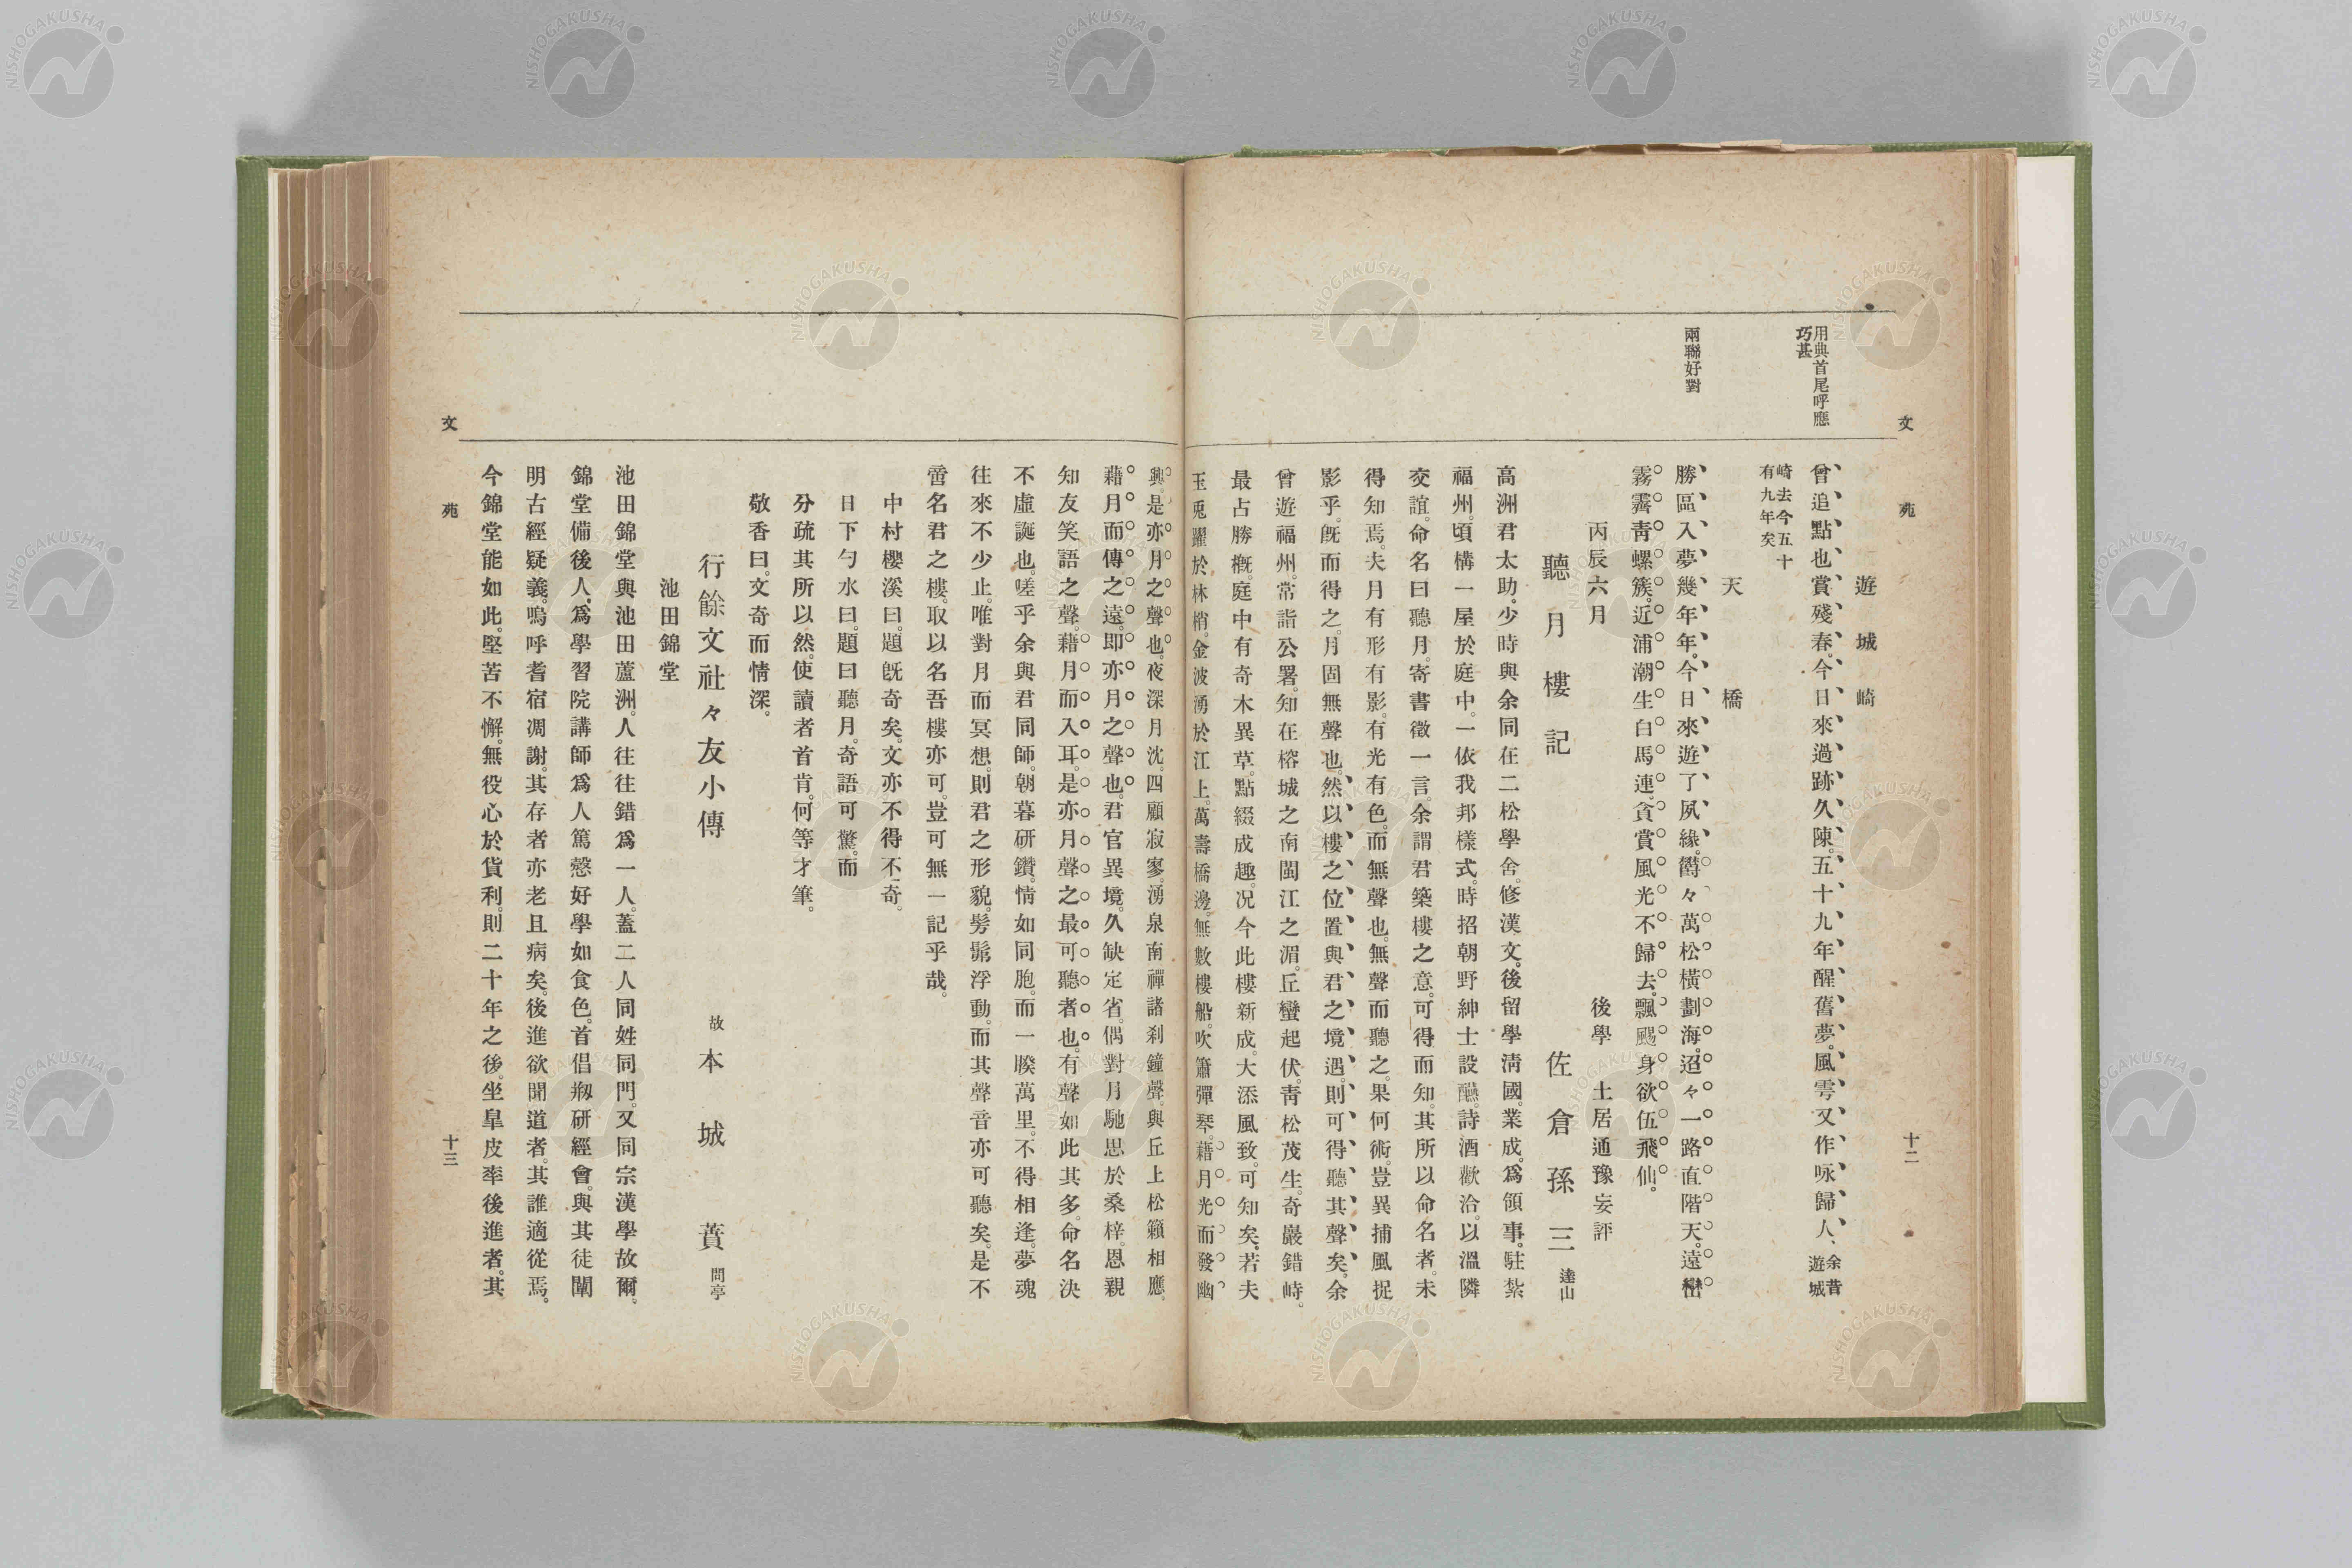 文苑
十二
用典首尾呼應
巧甚
兩聯好對
遊城崎
曾追點也賞殘春。今日來過跡久陳。五十九年醒舊夢。風雩又作咏歸人、余昔遊城
崎去今五十
有九年矣
天橋
勝區入夢幾年年。今日來遊了夙緣。欝々萬松橫劃海。迢々一路直階天。遠巒
霧霽靑螺簇。近浦潮生白馬連。貪賞風光不歸去。飄颺身欲伍飛仙。
丙辰六月 後學 土居通豫妄評
聽月樓記 佐倉孫三 達山
高洲君太助。少時與余同在二松學舍。修漢文。後留學淸國。業成。爲領事。駐紮
福州。頃構一屋於庭中。一依我邦樣式。時招朝野紳士設醼。詩酒歡洽。以溫隣
交誼。命名曰聽月。寄書徵一言。余謂君築樓之意。可得而知。其所以命名者。未
得知焉。夫月有形有影。有光有色。而無聲也。無聲而聽之。果何術。豈異捕風捉
影乎。旣而得之。月固無聲也。然以樓之位置與君之境遇。則可得聽其聲矣。余
曾遊福州。常詣公署。知在榕城之南閩江之湄。丘巒起伏。靑松茂生。奇巖錯峙。
最占勝槪。庭中有奇木異草。點綴成趣。况今此樓新成。大添風致。可知矣。若夫
玉兎躍於林梢。金波湧於江上。萬壽橋邊。無數樓船。吹簫彈琴。藉月光而發幽
興。是亦月之聲也。夜深月沈。四顧寂寥。湧泉南禪諸刹鐘聲。與丘上松籟相應。
藉月而傳之遠。卽亦月之聲也。君官異境。久缺定省。偶對月馳思於桑梓。恩親
知友笑語之聲。藉月而入耳。是亦月聲之最可聽者也。有聲如此其多。命名決
不虛誕也。嗟乎余與君同師。朝暮研鑽。情如同胞。而一睽萬里。不得相逢。夢魂
往來不少止。唯對月而冥想。則君之形貌。髣髴浮動。而其聲音亦可聽矣。是不
啻名君之樓。取以名吾樓亦可。豈可無一記乎哉。
中村櫻溪曰。題旣奇矣。文亦不得不奇。
日下勺水曰。題曰聽月。奇語可驚。而
分疏其所以然。使讀者首肯。何等才筆。
敬香曰。文奇而情深。
行餘文社々友小傳 故 本城蕡 問亭
池田錦堂
池田錦堂與池田蘆洲。人往往錯爲一人。蓋二人同姓同門。又同宗漢學故爾。
錦堂備後人。爲學習院講師爲人篤慤好學如食色。首倡剏研經會。與其徒闡
明古經疑義。嗚呼耆宿凋謝。其存者亦老且病矣。後進欲聞道者。其誰適從焉。
今錦堂能如此。堅苦不懈。無役心於貨利。則二十年之後。坐皐皮率後進者。其
文苑
十三